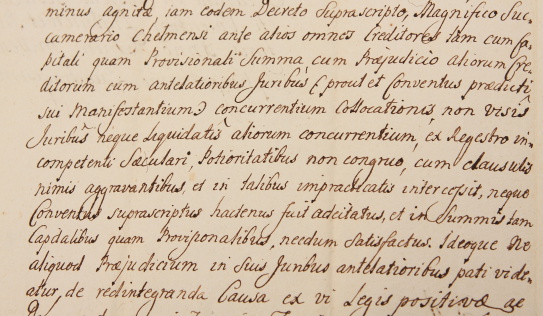 minus agnitæ, iam eodem Decreto Suprascripto, Magnifico Suc-
camerario Chelmensi ante alios omnes Creditores tam cum Ca-
pitali quam Provisionali Summa cum Præjudicio aliorum Cre-
ditorum cum antelatioribus Juribus (prout et Conventus prædicti
sui Manifestantium) concurrentium Collocationis, non visis
Juribus neque Liquidatis aliorum concurrentium, ex Regestro in-
competenti Sæculari, Potioritatibus non congruo, cum clausulis
nimis aggravantibus, et in talibus impracticatis intercessit, neque
Conventus suprascriptus hactenus fuit adcitatus, et in Summis tam
Capitalibus quam Provisionalibus, needum Satisfactus. Ideoque Ne
aliquod Præjudicium in Suis Juribus antelatioribus pati vide-
atur, de redintegranda Causa ex vi Legis positivæ ac